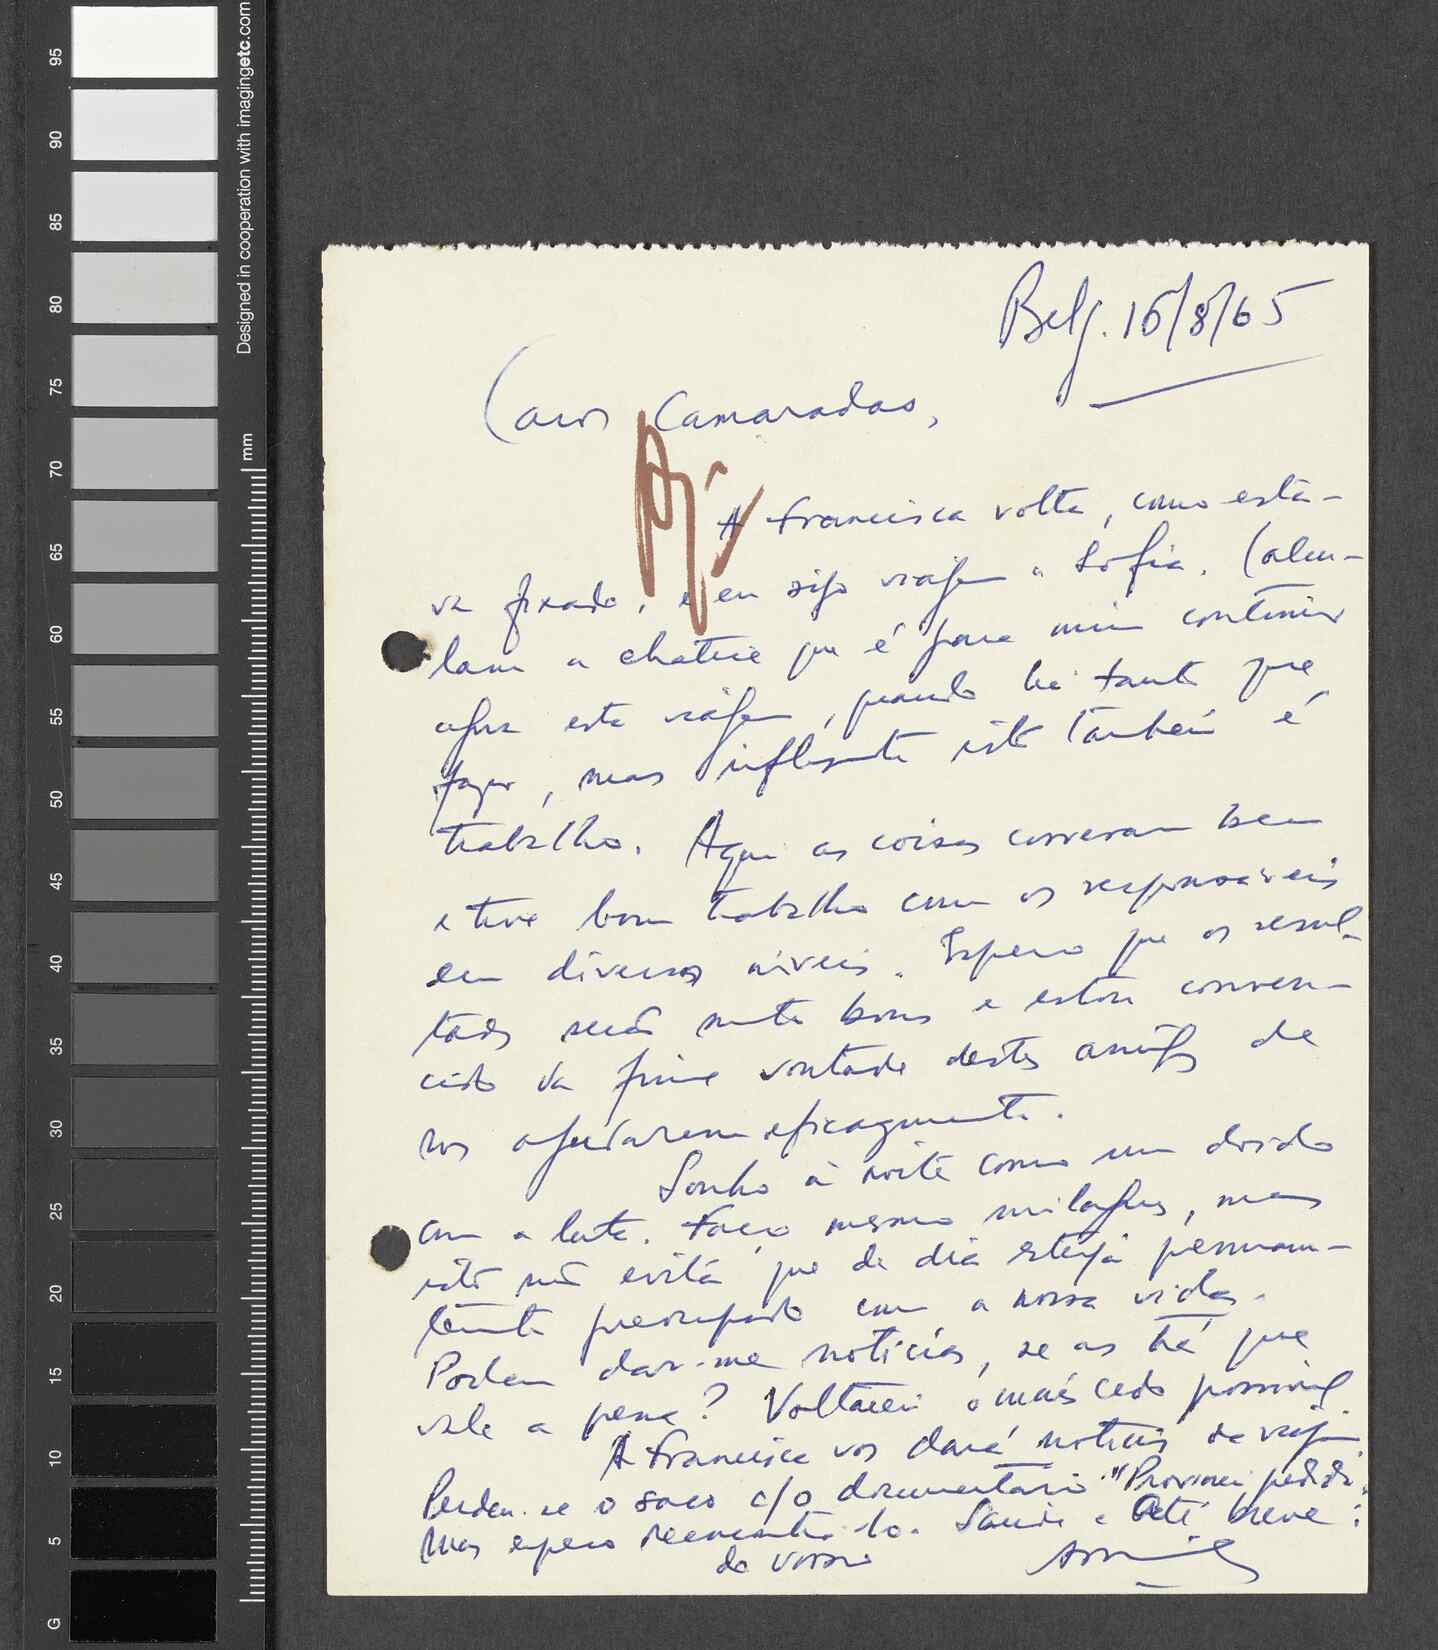 Designed in cooperation with imagingetc.com
mm
95
90
85
80
75
70
65
60
55
50
45
40
35
30
25
20
15
10
5
G
Belg. 16/8/65
Caros Camaradas,
A Francisca volta, como esta-
va fixado, e eu sigo viagem a Sofia. Calcu-
lam a chatice que é para mim continuar
agora esta viagem, quando há tanto que
fazer, mas infelizmente isto também é
trabalho. Aqui as coisas correram bem
e tive bom trabalho com os responsáveis
em diversos níveis. Espero que os resul-
tados serão muito bons e estou conven-
cido da firme vontade destes amigos de
nos ajudarem eficazmente.
Sonho à noite como um doido
com a luta. Faço mesmo milagres, mas
isto não evita que de dia esteja permanen-
temente preocupado com a nossa vida.
Podem dar-me notícias, se as há que
vale a pena? Voltarei o mais cedo possível.
A Francisca vos dará notícias da viagem.
Perdeu-se o saco c/o documentário
Mas espero reencontrá-lo. Saúde e até breve:
do vosso